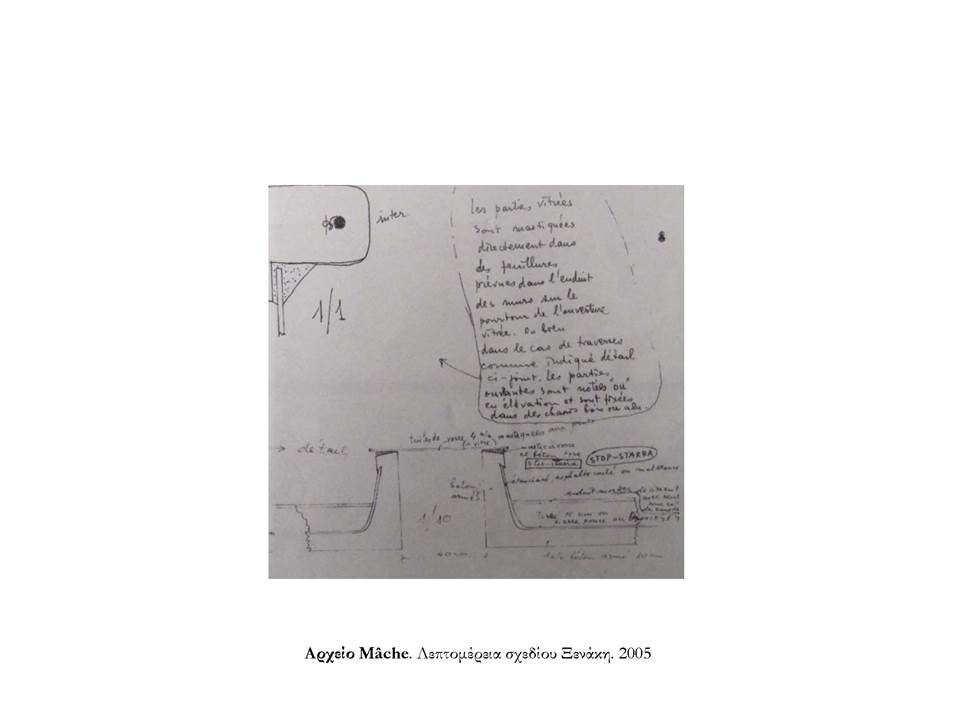 inter.
1/1
les parties vitrées
sont mastiquées
directement dans
des feuillures
prévues dans l'enduit
des murs sur le
pourtour de l'ouverture
vitrée. Ou bien
dans le cas de traverses
comme indiqué détail
ci-joint. Les parties
ouvrantes sont notées "ou"
en élévation et sont fixées
dans des chassis bois ou alu.
détail
mastiquées aux joints
et béton
STOP-STARBA
étanchéité, asphalte coulé ou
béton
armé
1/10
40cm
béton armé
Αρχείο Mâche. Λεπτομέρεια σχεδίου Ξενάκη. 2005